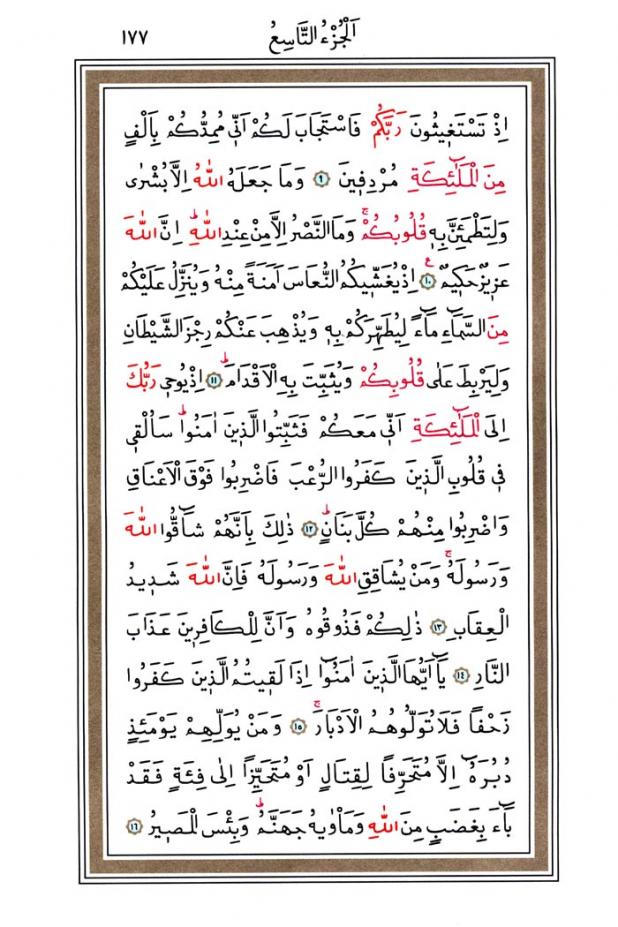 اَلْجُزْءُ التَّاسِعُ ١٧٧
اِذْ تَسْتَغ۪يثُونَ رَبَّكُمْ فَاسْتَجَابَ لَكُمْ اَنّ۪ي مُمِدُّكُمْ بِاَلْفٍ
مِنَ الْمَلٰٓئِكَةِ مُرْدِف۪ينَ ﴿٩﴾ وَمَا جَعَلَهُ اللّٰهُ اِلَّا بُشْرٰى
وَلِتَطْمَئِنَّ بِه۪ قُلُوبُكُمْۚ وَمَا النَّصْرُ اِلَّا مِنْ عِنْدِ اللّٰهِۜ اِنَّ اللّٰهَ
عَز۪يزٌ حَك۪يمٌ۟ ﴿١٠﴾ اِذْ يُغَشّ۪يكُمُ النُّعَاسَ اَمَنَةً مِنْهُ وَيُنَزِّلُ عَلَيْكُمْ
مِنَ السَّمَٓاءِ مَٓاءً لِيُطَهِّرَكُمْ بِه۪ وَيُذْهِبَ عَنْكُمْ رِجْزَ الشَّيْطَانِ
وَلِيَرْبِطَ عَلٰى قُلُوبِكُمْ وَيُثَبِّتَ بِهِ الْاَقْدَامَۜ ﴿١١﴾ اِذْ يُوح۪ي رَبُّكَ
اِلَى الْمَلٰٓئِكَةِ اَنّ۪ي مَعَكُمْ فَثَبِّتُوا الَّذ۪ينَ اٰمَنُواۜ سَاُلْق۪ي
ف۪ي قُلُوبِ الَّذ۪ينَ كَفَرُوا الرُّعْبَ فَاضْرِبُوا فَوْقَ الْاَعْنَاقِ
وَاضْرِبُوا مِنْهُمْ كُلَّ بَنَانٍۜ ﴿١٢﴾ ذٰلِكَ بِاَنَّهُمْ شَٓاقُّوا اللّٰهَ
وَرَسُولَهُۚ وَمَنْ يُشَاقِقِ اللّٰهَ وَرَسُولَهُ فَاِنَّ اللّٰهَ شَد۪يدُ
الْعِقَابِ ﴿١٣﴾ ذٰلِكُمْ فَذُوقُوهُ وَاَنَّ لِلْكَافِر۪ينَ عَذَابَ
النَّارِ ﴿١٤﴾ يَٓا اَيُّهَا الَّذ۪ينَ اٰمَنُٓوا اِذَا لَق۪يتُمُ الَّذ۪ينَ كَفَرُوا
زَحْفًا فَلَا تُوَلُّوهُمُ الْاَدْبَارَۚ ﴿١٥﴾ وَمَنْ يُوَلِّهِمْ يَوْمَئِذٍ
دُبُرَهُٓ اِلَّا مُتَحَرِّفًا لِقِتَالٍ اَوْ مُتَحَيِّزًا اِلٰى فِئَةٍ فَقَدْ
بَٓاءَ بِغَضَبٍ مِنَ اللّٰهِ وَمَاْوٰيهُ جَهَنَّمُۜ وَبِئْسَ الْمَص۪يرُ ﴿١٦﴾